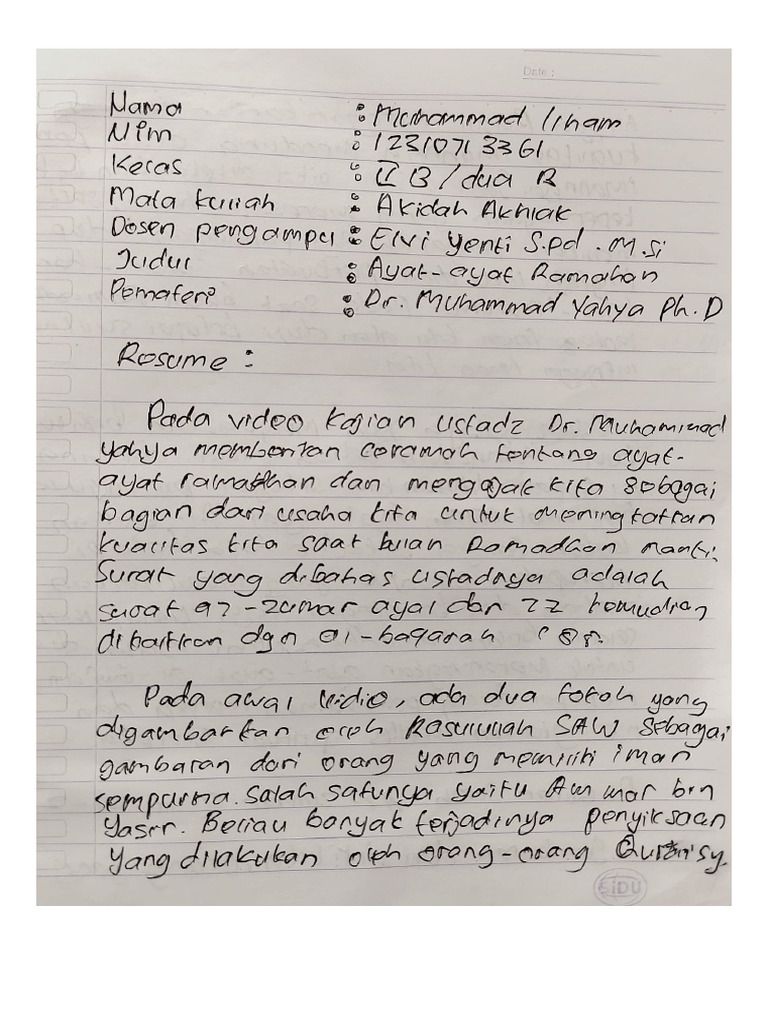 Date :
Nama : Muhammad Ilham
Nim : 12310713361
Kelas : II B / dua B
Mata kuliah : Akidah Akhlak
Dosen pengampu : Elvi Yenti S.pd . M.si
Judul : Ayat-ayat Ramahan
Pemateri : Dr. Muhammad Yahya Ph.D
Resume :
Pada video kajian ustadz Dr. Muhammad
yahya memberikan ceramah tentang ayat-
ayat ramadhan dan mengajak kita sebagai
bagian dari usaha kita untuk meningkatkan
kualitas kita saat bulan Ramadhan nanti.
Surat yang dibahas ustadnya adalah
surat az-zumar ayat dan 22 kemudian
dikaitkan dgn al-baqarah
Pada awal vidio, ada dua tokoh yang
digambarkan oleh Rasulullah SAW sebagai
gambaran dari orang yang memiliki iman
sempurna. Salah satunya yaitu Ammar bin
Yasir. Beliau banyak terjadinya penyiksaan
yang dilakukan oleh orang-orang Quraisy.
SIDU